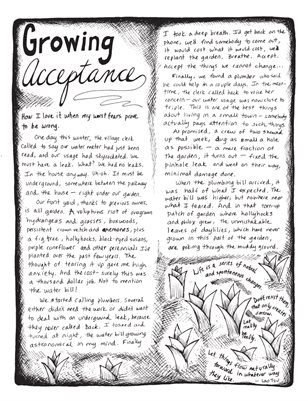 Growing
Acceptance
How I love it when my worst fears prove
to be wrong.
One day this winter, the village clerk
called to say our water meter had just been
read, and our usage had skyrocketed. We
must have a leak. What? We had no leaks.
In the house anyway. Uh-oh. It must be
underground, somewhere between the parkway
and the house — right under our garden.
Our front yard, thanks to previous owners,
is all garden. A voluptuous riot of overgrown
hydrangeas and grasses, boxwoods,
persistent crown vetch and anemones, plus
a fig tree, hollyhocks, black-eyed susans,
purple coneflower and other perennials I've
planted over the past few years. The
thought of tearing it up gave me high
anxiety. And the cost — surely this was
a thousand dollar job. Not to mention
the water bill!
We started calling plumbers. Several
either didn't need the work or didn't want
to deal with an underground leak, because
they never called back. I tossed and
turned at night, the water bill growing
astronomical in my mind. Finally
I took a deep breath. I'd get back on the
phone, we'd find somebody to come out,
it would cost what it would cost, we'd
replant the garden. Breathe. Accept.
Accept the things we cannot change...
Finally, we found a plumber who said
he could help in a couple days. In the mean-
time, the clerk called back to voice her
concern — our water usage was now close to
triple. This is one of the best things
about living in a small town — somebody
actually pays attention to such things.
As promised, a crew of four showed
up that week, dug as small a hole
as possible — a mere fraction of
the garden, it turns out — fixed the
pinhole leak and went on their way,
minimal damage done.
When the plumbing bill arrived, it
was half of what I expected. The
water bill was higher but nowhere near
what I feared. And in that torn-up
patch of garden where hollyhocks
and poppy grew, the unmistakable
leaves of daylilies, which have never
grown in this part of the garden,
are poking through the muddy ground.
Life is a series of natural
and spontaneous changes.
Don't resist them
Let things flow naturally
forward in whatever way
they like.
— Lao Tzu